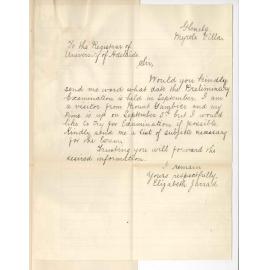 Glenelg
Myrtle Villa
To the Registrar of
University of Adelaide
Sir,
Would you kindly
send me word what date the Preliminary
Examination is held in September. I am
a visitor from Mount Gambier and my
time is up on September 5th but I would
like to try for Examination if possible.
Kindly send me a list of subjects necessary
for the Exam.
Trusting you will forward the
desired information.
I remain
Yours respectfully,
Elizabeth Jarrad